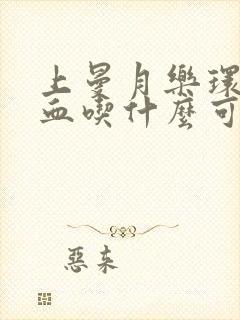 上曼月樂環
血喫什麼可
惡來